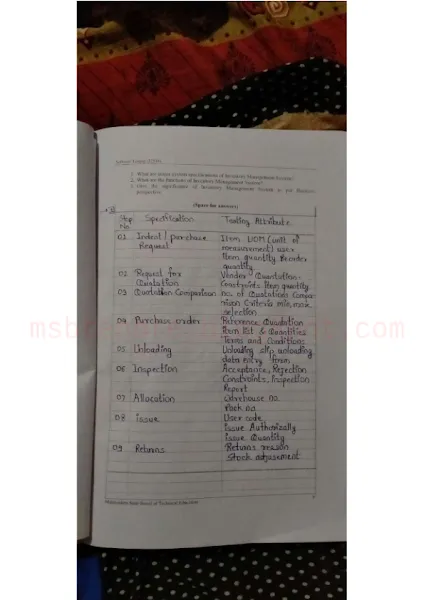 Software Testing (22518)
1. What are major system specifications of Inventory Management System?
2. What are the Functions of Inventory Management System?
3. Give the significance of Inventory Management System as per Business
perspective.
(Space for answers)
Step No. Specification Testing Attribute
01 Indent / purchase Request Item UOM (unit of
measurement) user
Item quantity. Reorder
quantity
02 Request for Quotation Vendor Quotation-
Constraints Item quantity
03 Quotation Comparison no. of Quotations Compa-
rison Criteria min, max
selection
04 Purchase order Reference Quotation
Item list & Quantities
Terms and Conditions
05 Unloading Unloading slip unloading
data entry form
06 Inspection Acceptance, Rejection
Constraints, Inspection
Report
07 Allocation Warehouse no.
Rack no
08 issue User code
issue Authorizally
issue Quantity
09 Returns Returns reason
Stock adjusement
Maharashtra State Board of Technical Education